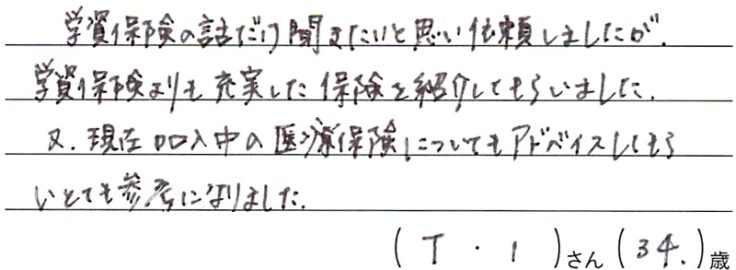 学資保険の話だけ聞きたいと思い依頼しましたが、
学資保険よりも充実した保険を紹介してもらいました。
又、現在加入中の医療保険についてもアドバイスしてもら
いとても参考になりました。
(T・I)さん(34.)歳